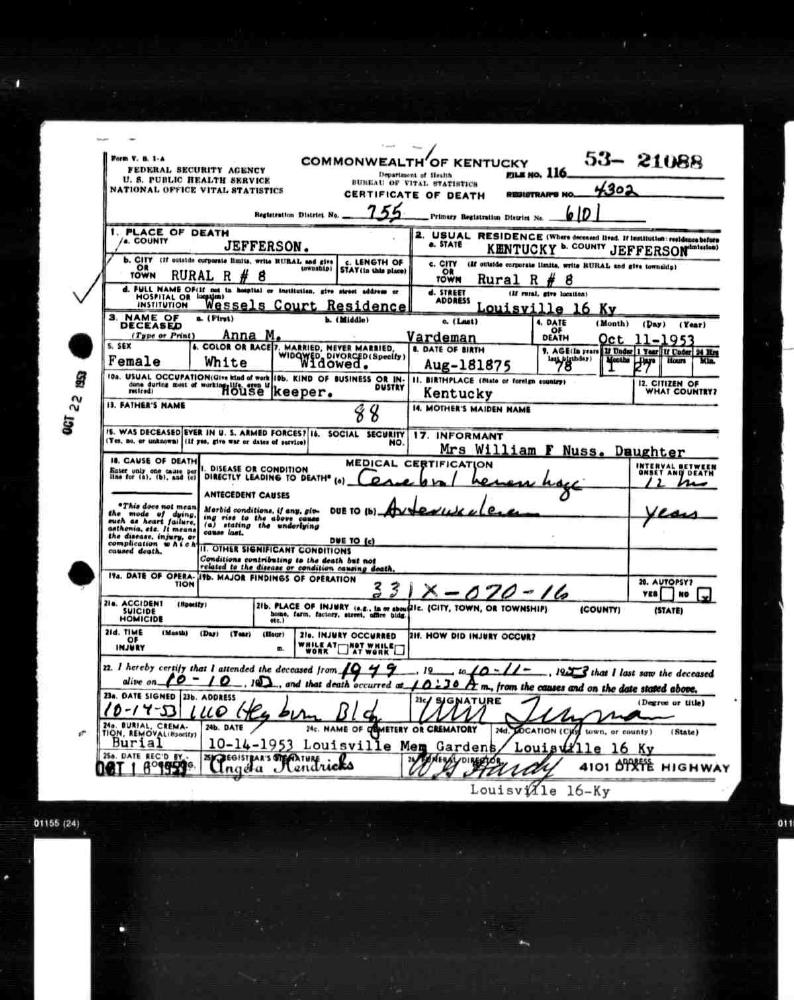 Form V. S. 1-A
FEDERAL SECURITY AGENCY
U. S. PUBLIC HEALTH SERVICE
NATIONAL OFFICE VITAL STATISTICS
COMMONWEALTH OF KENTUCKY
Department of Health
BUREAU OF VITAL STATISTICS
CERTIFICATE OF DEATH
53- 21088
FILE NO. 116
REGISTRAR'S NO. 4302
Registration District No. 755 Primary Registration District No. 6101
1. PLACE OF DEATH
a. COUNTY JEFFERSON.
2. USUAL RESIDENCE (Where deceased lived. If institution: residence before admission)
a. STATE KENTUCKY b. COUNTY JEFFERSON
b. CITY (If outside corporate limits, write RURAL and give township) OR TOWN RURAL R # 8
c. LENGTH OF STAY (in this place)
c. CITY (If outside corporate limits, write RURAL and give township) OR TOWN Rural R # 8
d. FULL NAME OF (If not in hospital or institution, give street address or location) HOSPITAL OR INSTITUTION Wessels Court Residence
d. STREET ADDRESS (If rural, give location) Louisville 16 Ky
3. NAME OF DECEASED (Type or Print)
a. (First) Anna M. b. (Middle) c. (Last) Vardeman
4. DATE OF DEATH (Month) (Day) (Year) Oct 11-1953
5. SEX Female
6. COLOR OR RACE White
7. MARRIED, NEVER MARRIED, WIDOWED, DIVORCED (Specify) Widowed.
8. DATE OF BIRTH Aug-181875
9. AGE (In years last birthday) 78
If Under 1 Year Months 1 Days 27
If Under 24 Hrs Hours Min.
10a. USUAL OCCUPATION (Give kind of work done during most of working life, even if retired) House keeper.
10b. KIND OF BUSINESS OR INDUSTRY
11. BIRTHPLACE (State or foreign country) Kentucky
12. CITIZEN OF WHAT COUNTRY?
13. FATHER'S NAME
88
14. MOTHER'S MAIDEN NAME
15. WAS DECEASED EVER IN U. S. ARMED FORCES? (Yes, no, or unknown) (If yes, give war or dates of service)
16. SOCIAL SECURITY NO.
17. INFORMANT
Mrs William F Nuss. Daughter
18. CAUSE OF DEATH
Enter only one cause per line for (a), (b), and (c)
MEDICAL CERTIFICATION
INTERVAL BETWEEN ONSET AND DEATH
I. DISEASE OR CONDITION DIRECTLY LEADING TO DEATH* (a) Cerebral hemorrhage 12 hrs
*This does not mean the mode of dying, such as heart failure, asthenia, etc. It means the disease, injury, or complication which caused death.
ANTECEDENT CAUSES
Morbid conditions, if any, giving rise to the above cause (a) stating the underlying cause last.
DUE TO (b) Arteriosclerosis years
DUE TO (c)
II. OTHER SIGNIFICANT CONDITIONS
Conditions contributing to the death but not related to the disease or condition causing death.
19a. DATE OF OPERATION
19b. MAJOR FINDINGS OF OPERATION
331X-070-16
20. AUTOPSY? YES NO
21a. ACCIDENT SUICIDE HOMICIDE (Specify)
21b. PLACE OF INJURY (e.g., in or about home, farm, factory, street, office bldg. etc.)
21c. (CITY, TOWN, OR TOWNSHIP) (COUNTY) (STATE)
21d. TIME OF INJURY (Month) (Day) (Year) (Hour) m.
21e. INJURY OCCURRED WHILE AT WORK NOT WHILE AT WORK
21f. HOW DID INJURY OCCUR?
22. I hereby certify that I attended the deceased from 1949, 19 to 10-11-, 1953 that I last saw the deceased
alive on 10-10, 19 , and that death occurred at 10:30 A m., from the causes and on the date stated above.
23a. DATE SIGNED 10-14-53
23b. ADDRESS Heyburn Bldg
23c. SIGNATURE (Degree or title)
24a. BURIAL, CREMATION, REMOVAL (Specify) Burial
24b. DATE 10-14-1953
24c. NAME OF CEMETERY OR CREMATORY Louisville Mem Gardens
24d. LOCATION (City, town, or county) (State) Louisville 16 Ky
25a. DATE REC'D BY
25b. REGISTRAR'S SIGNATURE Angela Hendricks
26. FUNERAL DIRECTOR Hardy
ADDRESS 4101 DIXIE HIGHWAY
Louisville 16-Ky
OCT 22 1953
01155 (24)
011